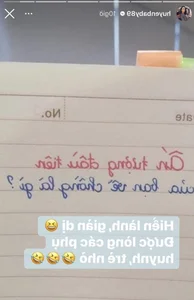 huyenbaby89 10giờ
No.
ate
Ấn tượng đầu tiên
của bạn về chồng là gì?
Hiền lành, giản dị 😆
Được lòng các phụ
huynh, trẻ nhỏ 🤣🤣🤣